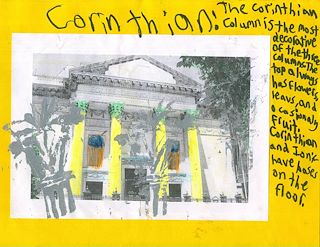 Corinthian:
The corinthian
column is the most
decorative
of the three
columns. The
top always
has flowers,
leavs, and
ocasionaly
fruit.
Corinthian
and Ionic
have bases
on the
floor.